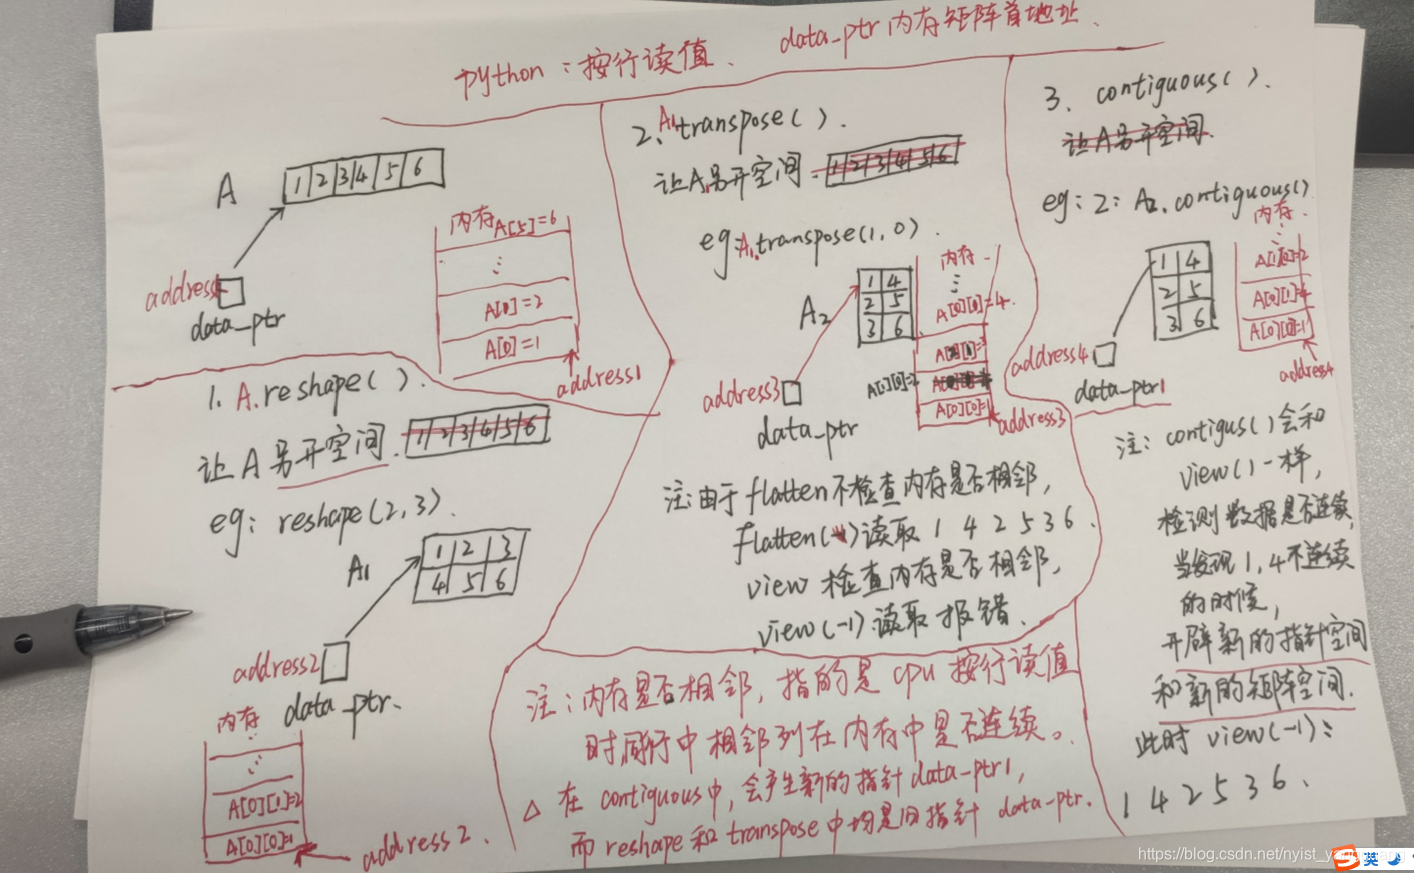 python：按行读值、 data_ptr 内存矩阵首地址.
A
1 2 3 4 5 6
address1
data_ptr
内存 A[5]=6
⋮
A[0]=2
A[0]=1
address1
1. A.reshape().
让A另开空间. 1 2 3 4 5 6
eg: reshape(2,3).
A1
1 2 3
4 5 6
address2
data_ptr.
内存
⋮
A[0][1]=2
A[0][0]=1
address2.
2. A1.transpose().
让A1另开空间. 1 2 3 4 5 6
eg: A1.transpose(1,0).
A2
1 4
2 5
3 6
address3
data_ptr
内存.
⋮
A[0][0]=4.
A[1][0]=2
A[0][0]=1
address3
注:由于flatten不检查内存是否相邻,
flatten( )读取 1 4 2 5 3 6.
view 检查内存是否相邻,
view(-1)读取报错.
注:内存是否相邻, 指的是cpu按行读值
时同行中相邻列在内存中是否连续。
△ 在 contiguous中, 会产生新的指针data_ptr1,
而reshape和transpose中均是旧指针 data_ptr.
3. contiguous().
让A另开空间.
eg: 2: A2.contiguous()
1 4
2 5
3 6
address4
data_ptr1
内存.
⋮
A[1][0]=2
A[0][1]=4
A[0][0]=1
address4
注: contigus()会和
view()一样,
检测数据是否连续,
当发现1,4不连续
的时候,
开辟新的指针空间
和新的矩阵空间.
此时 view(-1):
1 4 2 5 3 6 .
英